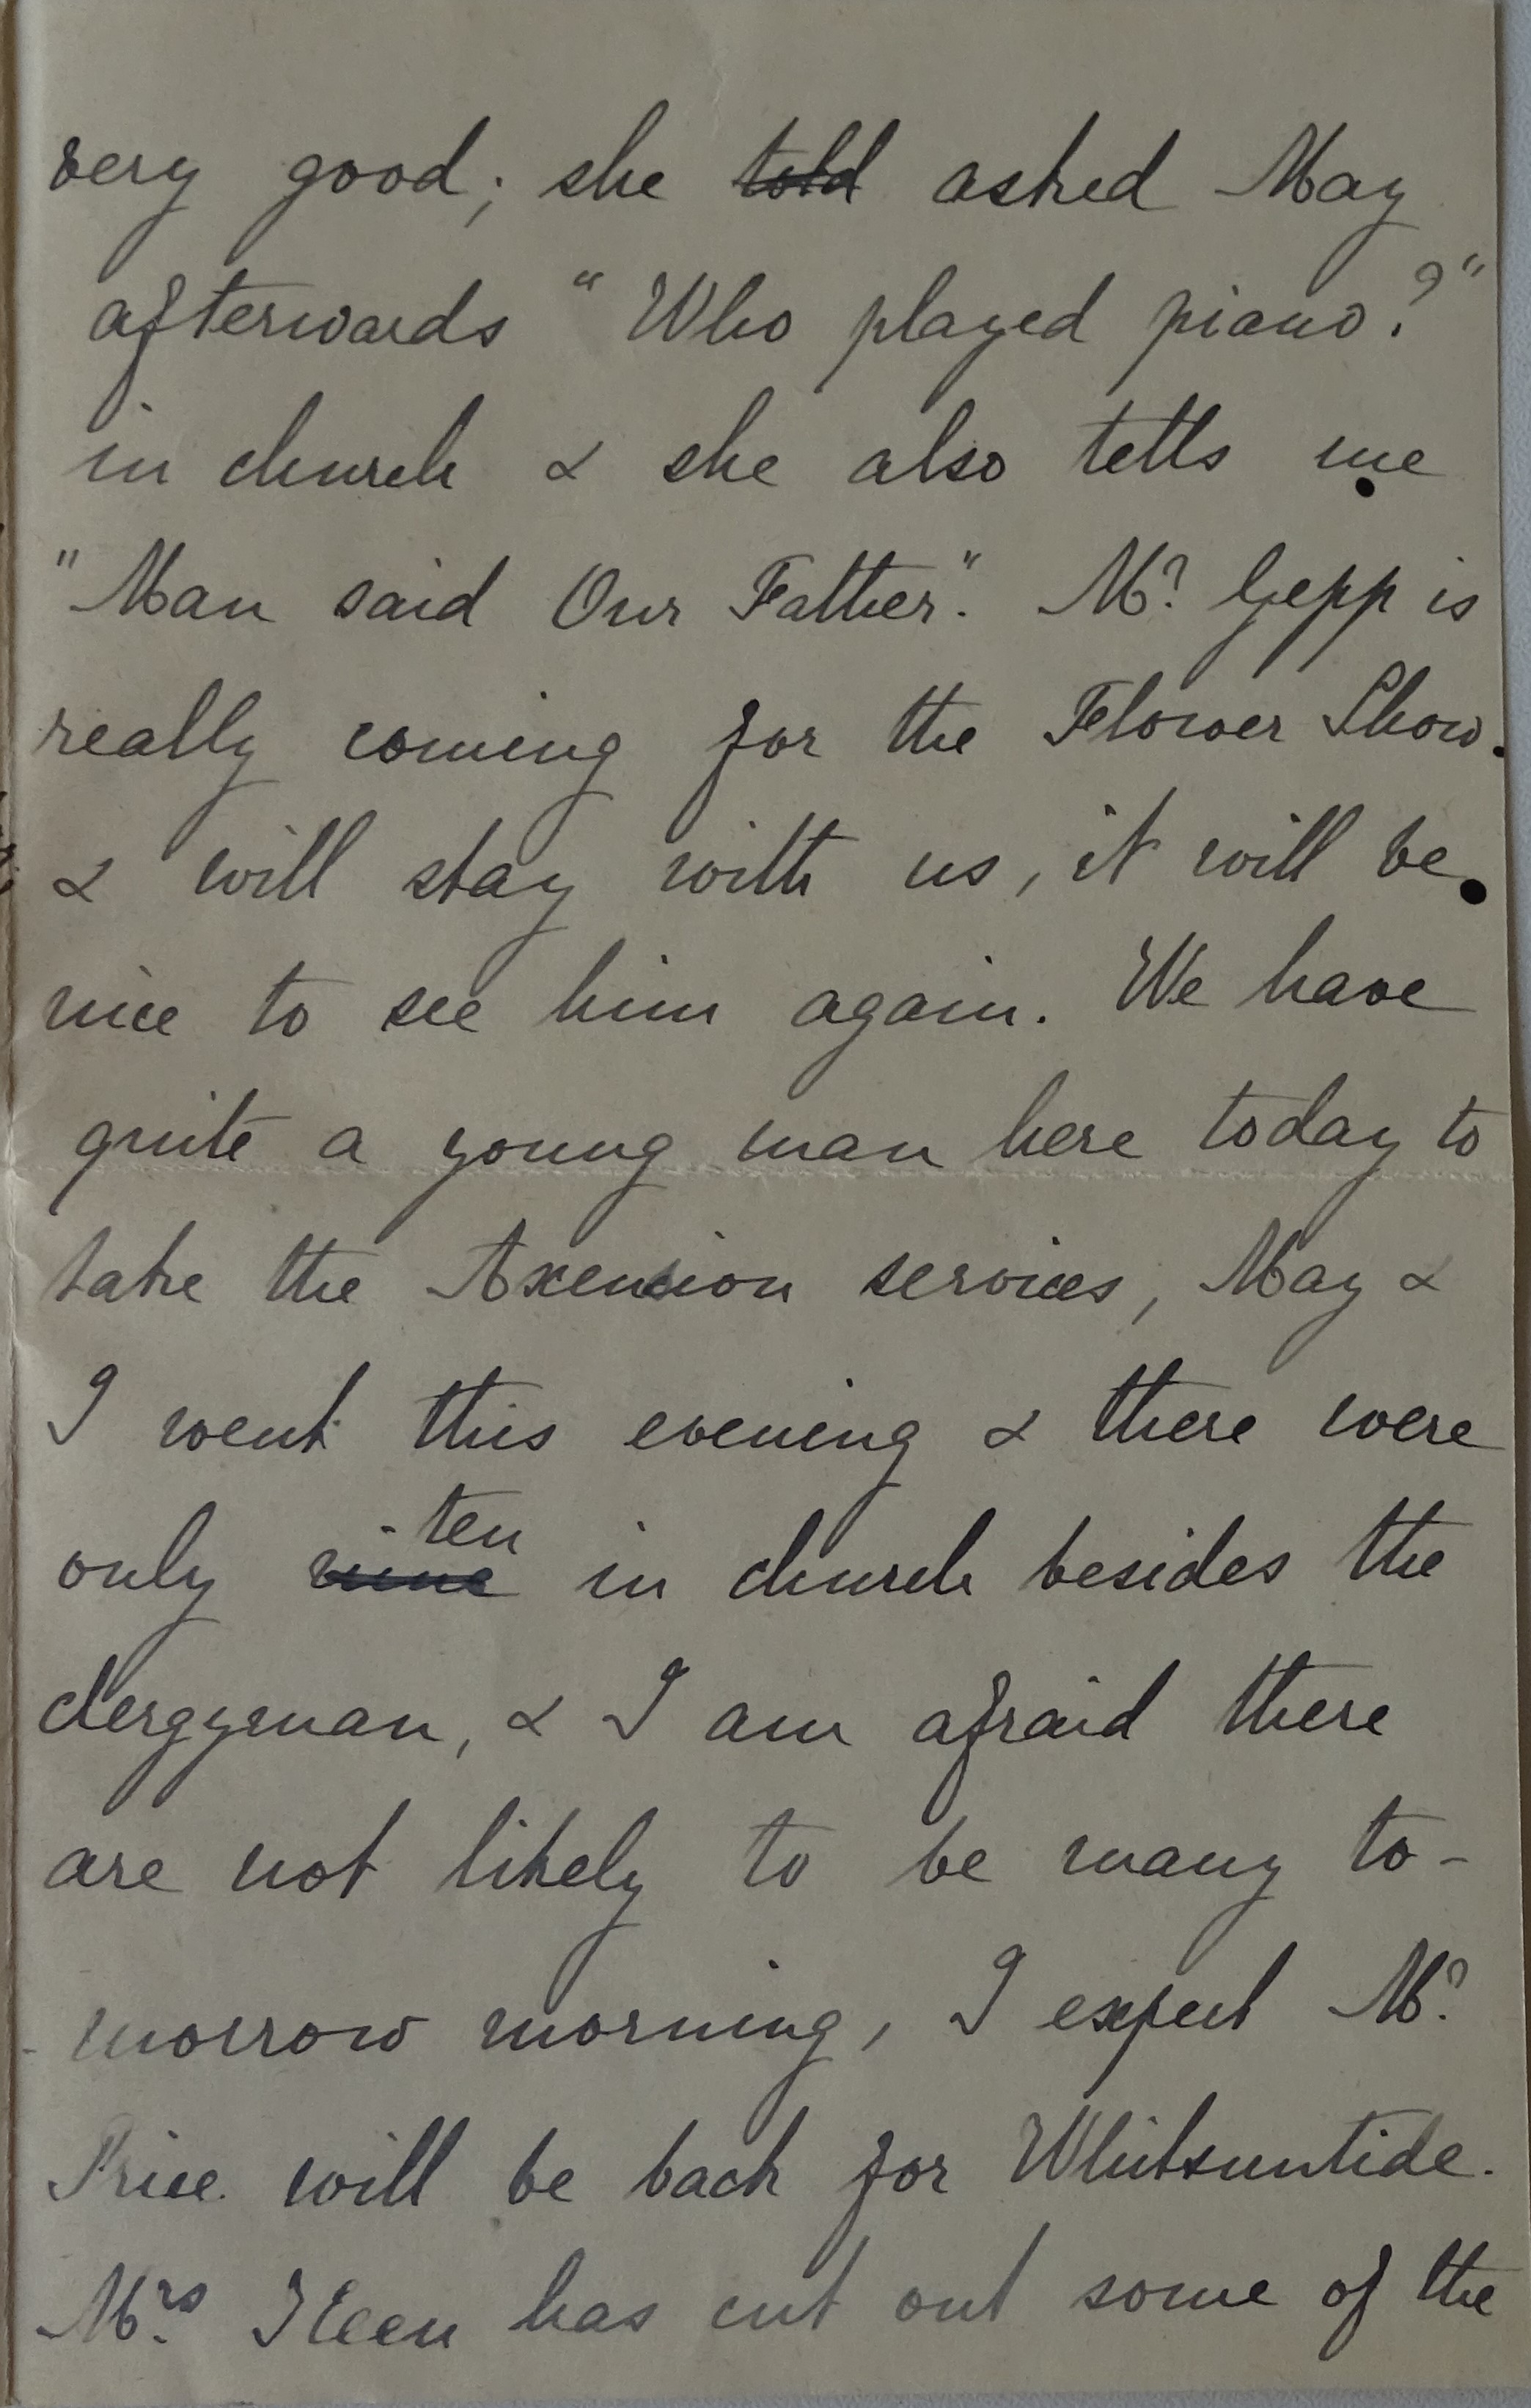 very good; she told asked May
afterwards "Who played piano?"
in church & she also tells me
"Man said Our Father". Mr. Gepp is
really coming for the Flower Show.
& will stay with us, it will be
nice to see him again. We have
quite a young man here today to
take the Axension services, May &
I went this evening & there were
only nine ten in church besides the
clergyman, & I am afraid there
are not likely to be many to-
-morrow morning, I expect Mr.
Price will be back for Whitsuntide.
Mrs. has cut out some of the